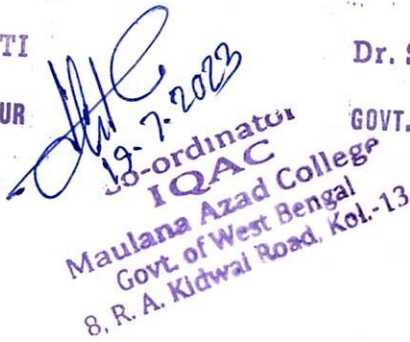 TI
UR
Dr. S
GOVT.
19-7-2023
Co-ordinator
IQAC
Maulana Azad College
Govt. of West Bengal
8, R. A. Kidwai Road, Kol.-13